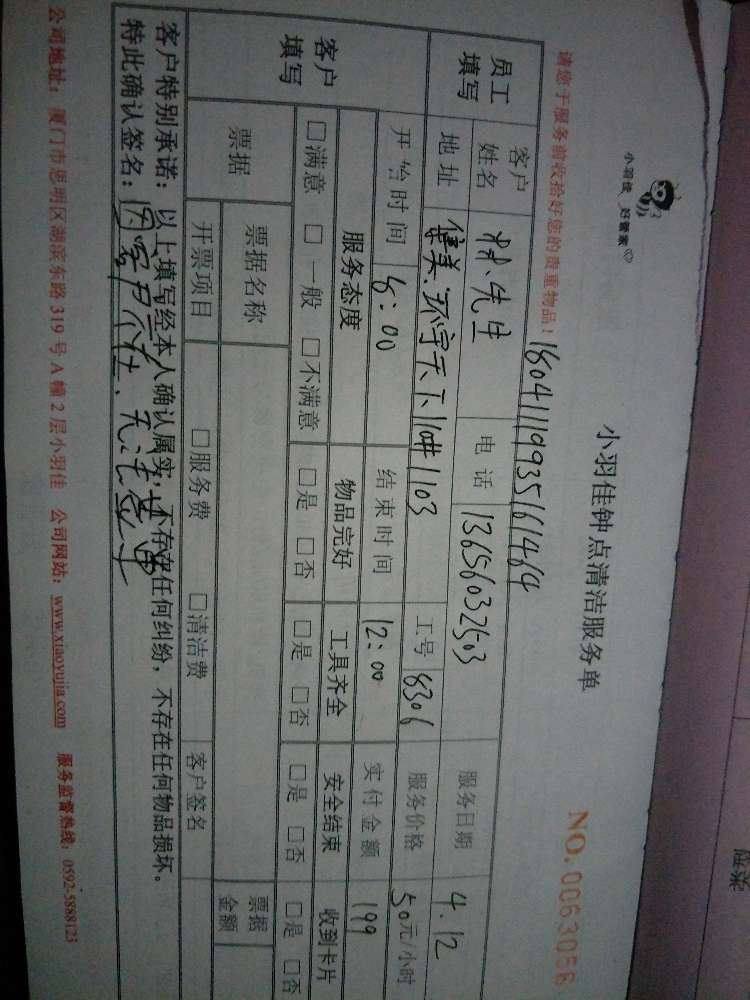 小羽佳 好管家
小羽佳钟点清洁服务单
NO.0063056
请您于服务前收拾好您的贵重物品！
员工填写
客户姓名 林先生 电话 13656032503 服务日期 4.12
地址 集美.环宇天下110#1103 工号 8306 服务价格 50元/小时
开始时间 8:00 结束时间 12:00 实付金额 199
客户填写
服务态度 物品完好 工具齐全 安全结束 收到卡片
□满意 □一般 □不满意 □是 □否 □是 □否 □是 □否 □是 □否
票据 票据名称 票据金额
开票项目 □服务费 □清洁费 客户签名
客户特别承诺：以上填写经本人确认属实，不存在任何纠纷，不存在任何物品损坏。
特此确认签名：因客户不在、无法签单
公司地址：厦门市思明区湖滨东路319号A幢2层小羽佳 公司网站：www.xiaoyujia.com 服务监督热线：0592-5888123